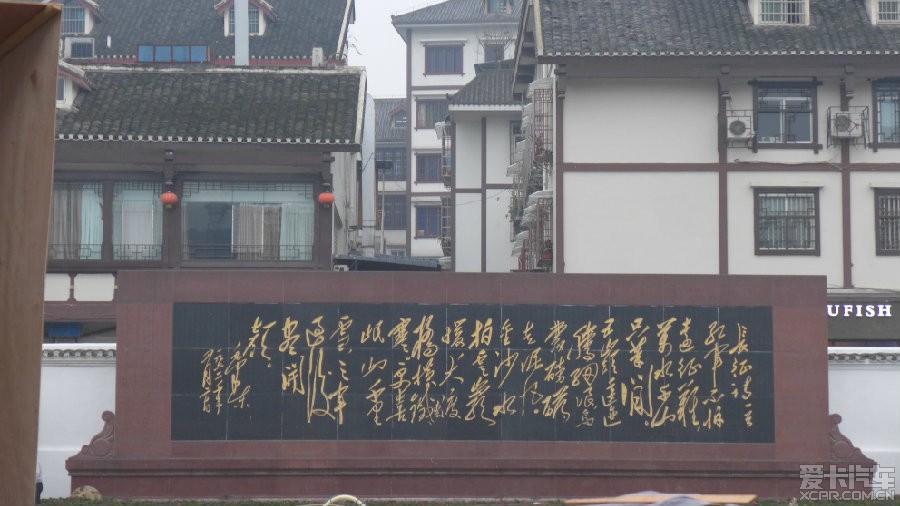 长征诗一首
红军不怕
远征难
万水千山
只等闲
五岭逶迤
腾细浪乌
蒙磅礴
走泥丸
金沙水
拍云崖
暖大渡
桥横铁索
寒更喜
岷山千里
雪三军
过后
尽开
颜
毛泽东
UFISH
爱卡汽车
XCAR.COM.CN